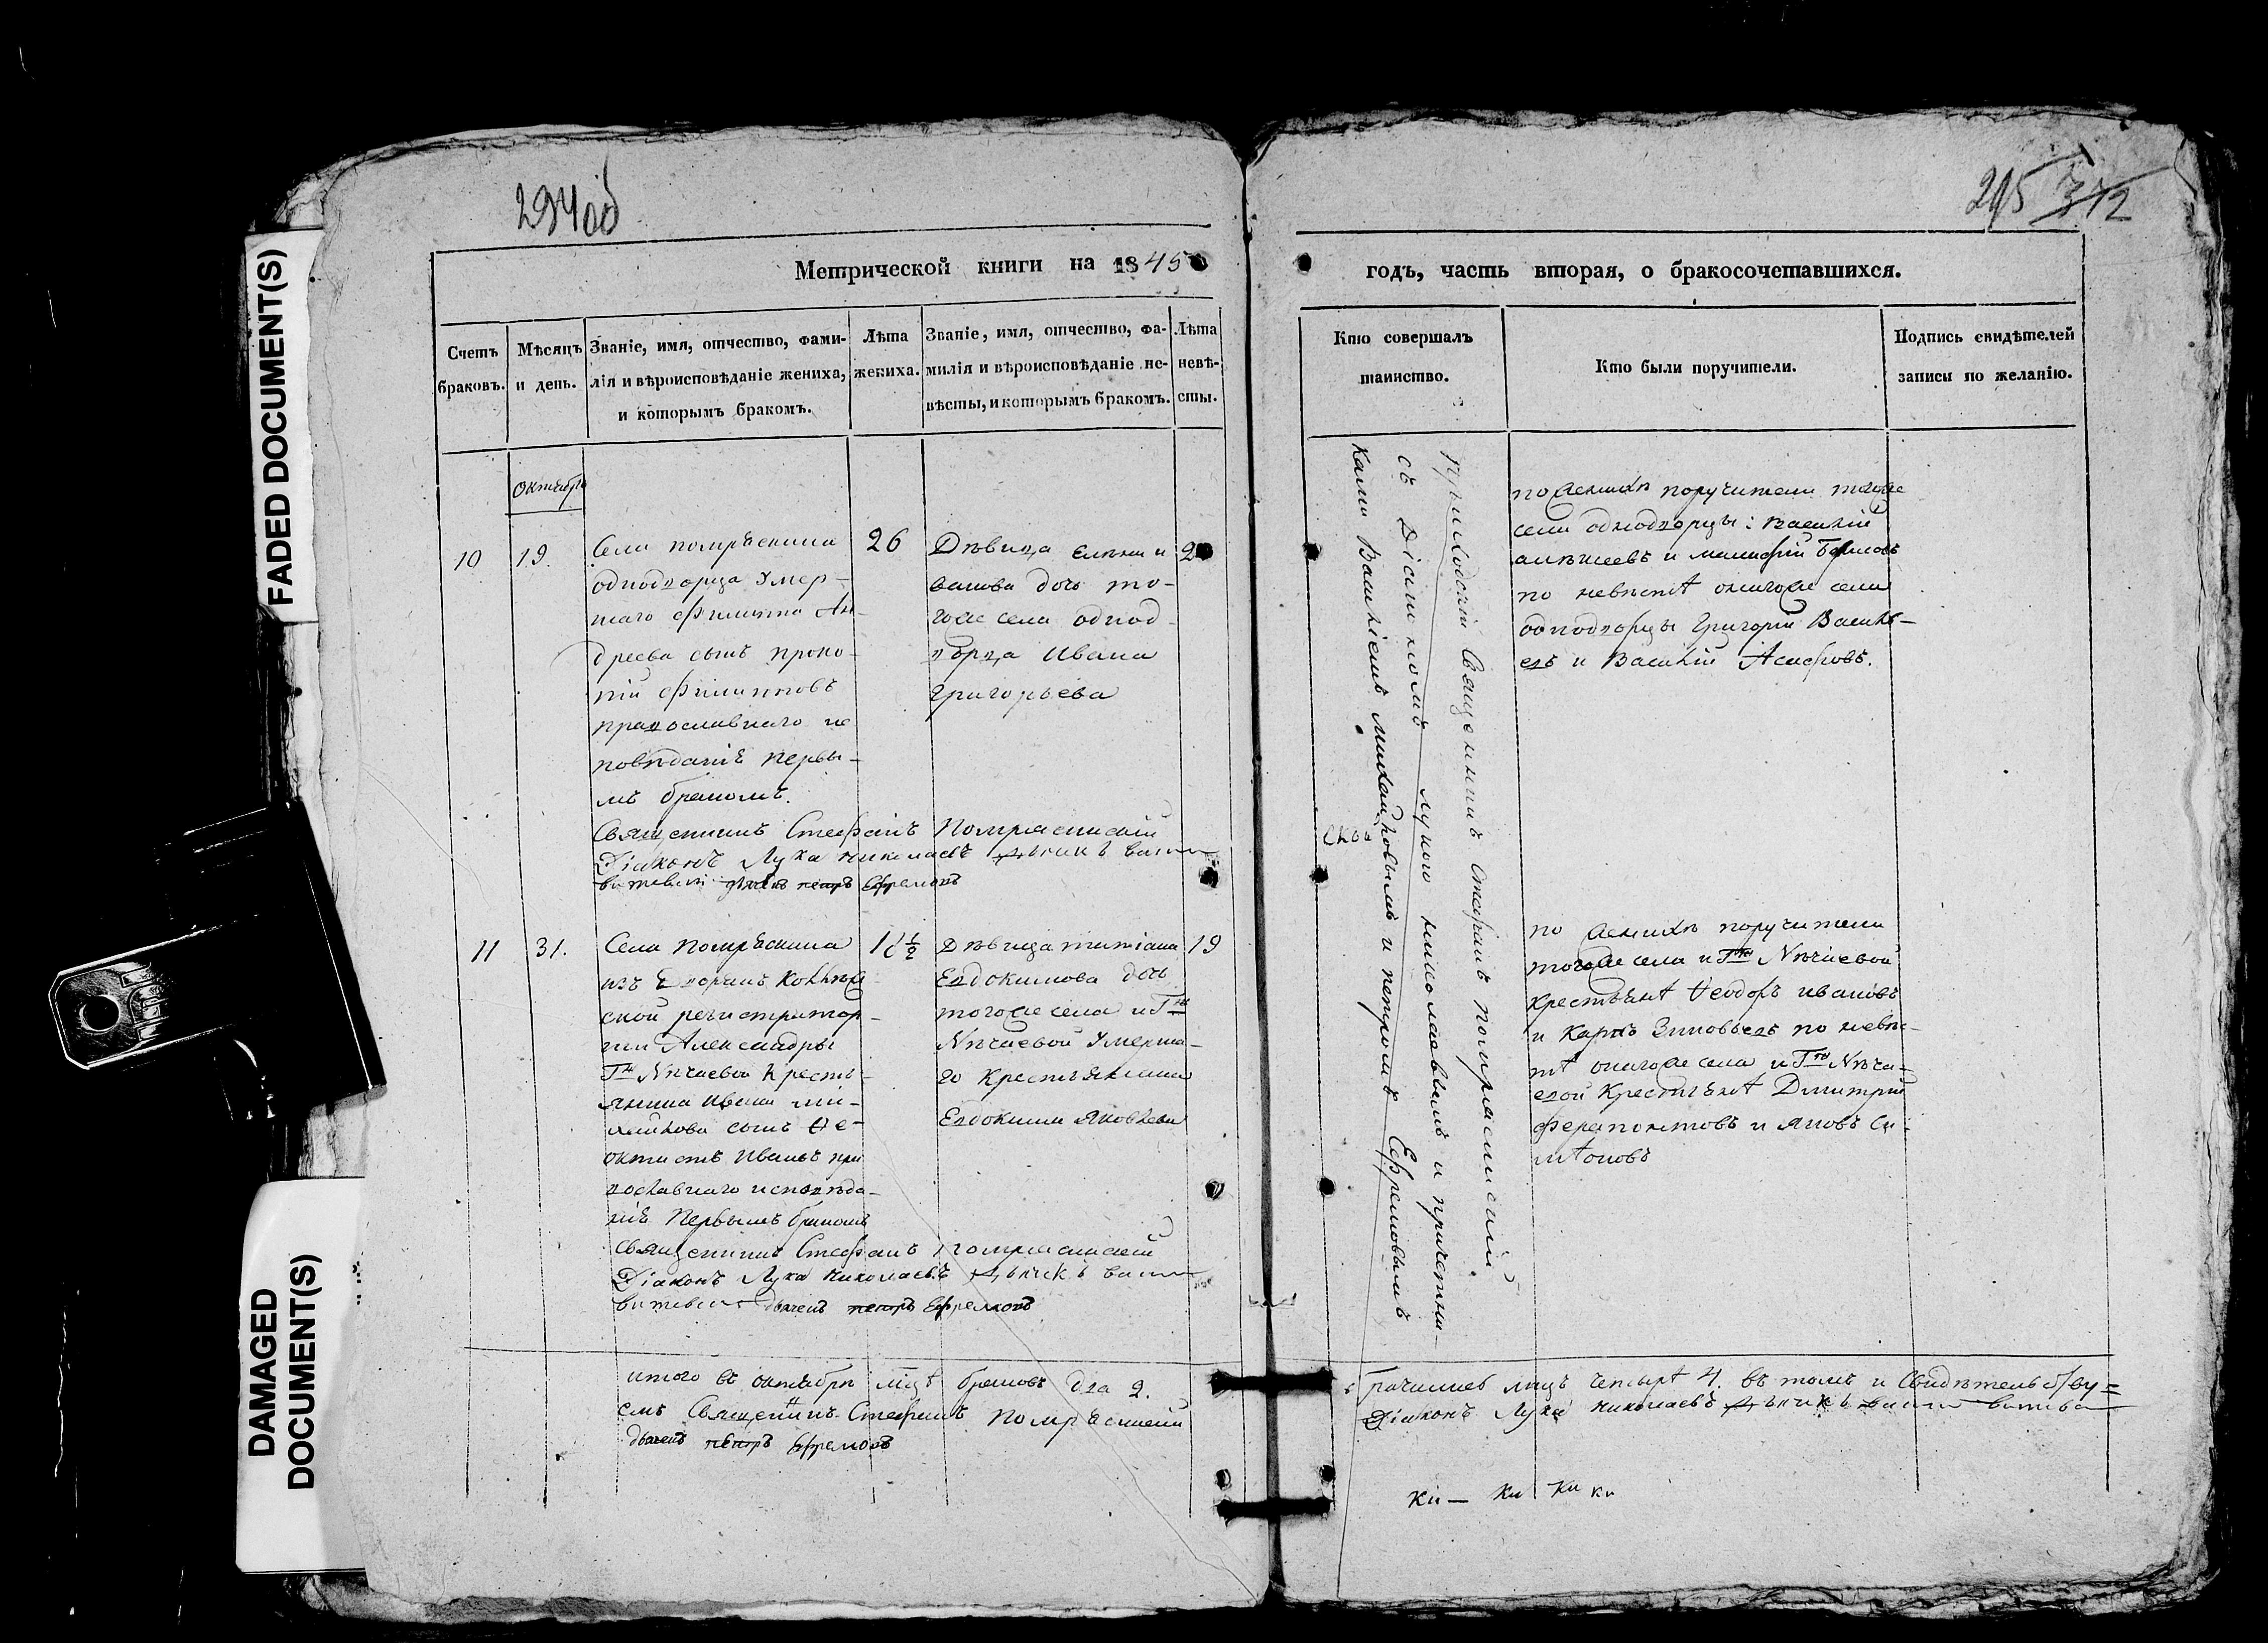 FADED DOCUMENT(S)
DAMAGED
DOCUMENT(S)
294 об
Метрической книги на 1845
Счетъ браковъ.
Мѣсяцъ и день.
Званіе, имя, отчество, фами-
лія и вѣроисповѣданіе жениха,
и которымъ бракомъ.
Лѣта
жениха.
Званіе, имя, отчество, фа-
милія и вѣроисповѣданіе не-
вѣсты, и которымъ бракомъ.
Лѣта
невѣ-
сты.
Октября
10
19.
Села Потряскина
однодворца Умер-
шаго Филиппа Ан-
дреева сынъ Проко-
пій Филиповъ
православнаго ис
повѣданія первы-
мъ бракомъ.
26
Дѣвица Елена И
ванова дочь то-
гоже села однод
ворца Ивана
Григорьева
2
Священникъ Стефанъ Потряскинскій
Діаконъ Лука Николаевъ
Петръ Ефремовъ
11
31.
Села Потряскина
изъ Дворянъ Коллеж
ской регистратор-
ши Александры
Гжи Нѣчаевой кресть-
янина Ивана Ми-
хайлова сынъ Ѳе-
октистъ Ивановъ пра
вославнаго исповѣда-
нія Первымъ бракомъ
18 ½
Дѣвица Татіана
Евдокимова дочь
тогоже села и Гжи
Нѣчаевой Умерша-
го Крестьянина
Евдокима Яковлева
19
Священникъ Стефанъ Потряскинскій
Діаконъ Лука Николаевъ
Петръ Ефремовъ
итого въ октябрѣ мцѣ браковъ два 2.
Священникъ Стефанъ Потряскинскій
Петръ Ефремовъ
215 312
годъ, часть вторая, о бракосочетавшихся.
Кто совершалъ
таинство.
Кто были поручители.
Подпись свидѣтелей
записи по желанію.
Приходскій Священникъ Стефанъ Потряскинскій
съ Діакономъ Лукою Николаевымъ и причетни-
ками Василіемъ Михайловымъ и Петромъ Ефремовымъ
по женихѣ поручители тогоже
села однодворцы: Василій
Алексѣевъ и Борисовъ
по невѣстѣ оногоже села
однодворцы Григорій Василь-
евъ и Василій
по женихѣ поручители
тогоже села и Гжи Нѣчаевой
крестьяне Ѳеодоръ Ивановъ
и Карпъ Зиновьевъ по невѣс-
тѣ оногоже села и Гжи Нѣча-
евой Крестьяне Дмитрій
Ферапонтовъ и Яковъ Си-
моновъ
лицъ четыре 4. въ томъ и свидѣтельству=
Діаконъ Лука Николаевъ
Ки— Ки Ки ки